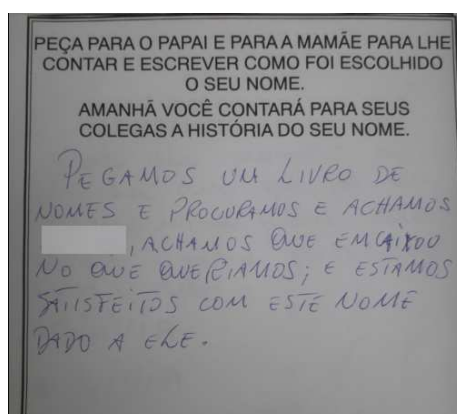 PEÇA PARA O PAPAI E PARA A MAMÃE PARA LHE
CONTAR E ESCREVER COMO FOI ESCOLHIDO
O SEU NOME.
AMANHÃ VOCÊ CONTARÁ PARA SEUS
COLEGAS A HISTÓRIA DO SEU NOME.
PEGAMOS UM LIVRO DE
NOMES E PROCURAMOS E ACHAMOS
, ACHAMOS QUE EMCAIXOU
NO QUE QUERIAMOS; E ESTAMOS
SATISFEITOS COM ESTE NOME
DADO A ELE.